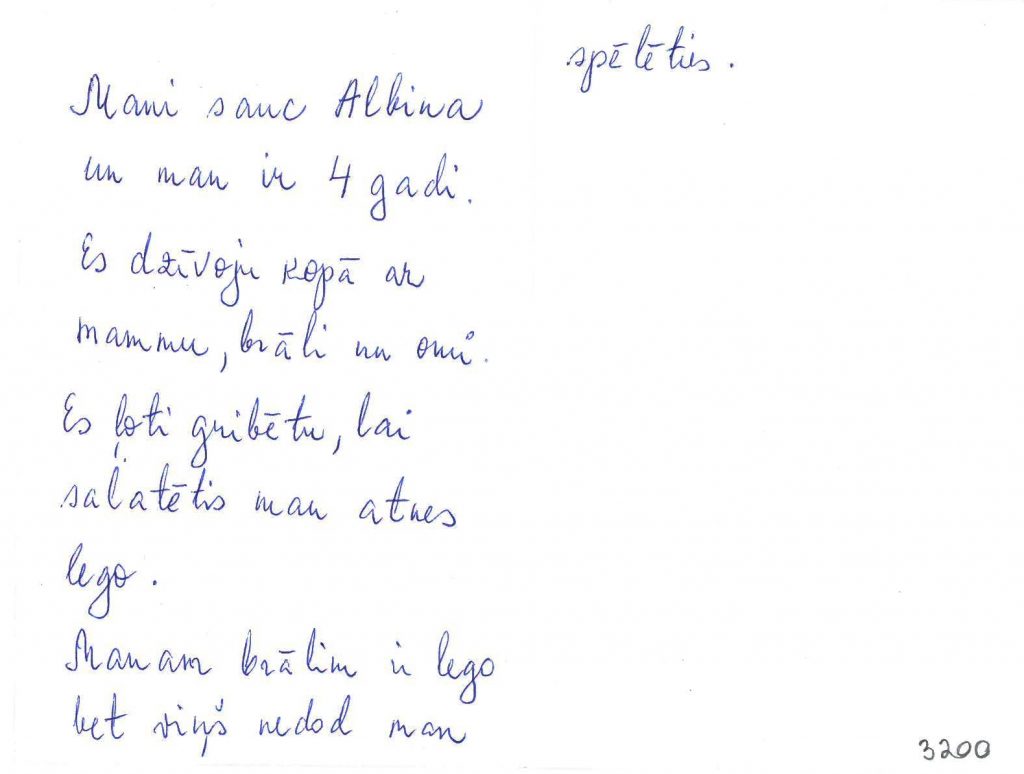 Mani sauc Albina
un man ir 4 gadi.
Es dzīvoju kopā ar
mammu, brāli un omi.
Es ļoti gribētu, lai
salatētis man atnes
lego.
Manam brālim ir lego
bet viņš nedod man
spēlēties.
3200